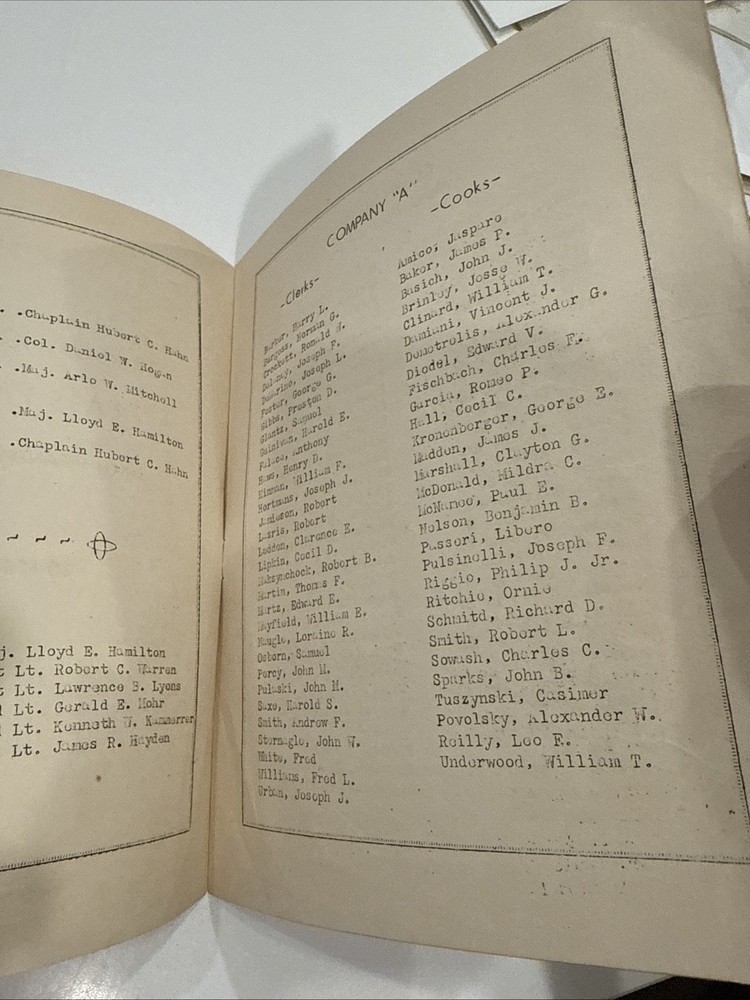 .Chaplain Hubert C. Hahn
.Col. Daniel W. Hogan
.Maj. Arlo W. Mitchell
.Maj. Lloyd E. Hamilton
.Chaplain Hubert C. Hahn
j. Lloyd E. Hamilton
t Lt. Robert C. Warren
t Lt. Lawrence B. Lyons
d Lt. Gerald E. Mohr
d Lt. Kenneth W. Kammerrer
Lt. James R. Hayden
COMPANY "A"
-Clerks-
Barker, Harry L.
Burgess, Norman G.
Crockett, Ronald H.
Delaney, Joseph F.
Joseph L.
Foster, George G.
Gibbs, Preston D.
Glantz, Samuel
Harold E.
Anthony
Haws, Henry D.
Hinman, William F.
Hortmans, Joseph J.
Jamieson, Robert
Robert
Leddon, Clarence E.
Lipkin, Cecil D.
Robert B.
Martin, Thomas F.
Martz, Edward E.
Mayfield, William E.
Naugle, Loraine R.
Osborn, Samuel
Percy, John M.
Pulaski, John M.
Saxe, Harold S.
Smith, Andrew F.
Sternagle, John W.
White, Fred
Williams, Fred L.
Urban, Joseph J.
-Cooks-
Amico, Jasparo
Baker, James P.
Basich, John J.
Brinley, Jesse W.
Clinard, William T.
Damiani, Vincent J.
Demetrolis, Alexander G.
Diodel, Edward V.
Fischbach, Charles F.
Garcia, Romeo P.
Hall, Cecil C.
Kronenberger, George E.
Maddon, James J.
Marshall, Clayton G.
McDonald, Mildra C.
McNamee, Paul E.
Nelson, Benjamin B.
Passeri, Libero
Pulsinelli, Joseph F.
Riggio, Philip J. Jr.
Ritchie, Ornie
Schmitd, Richard D.
Smith, Robert L.
Sowash, Charles C.
Sparks, John B.
Tuszynski, Casimer
Povolsky, Alexander W.
Reilly, Leo F.
Underwood, William T.